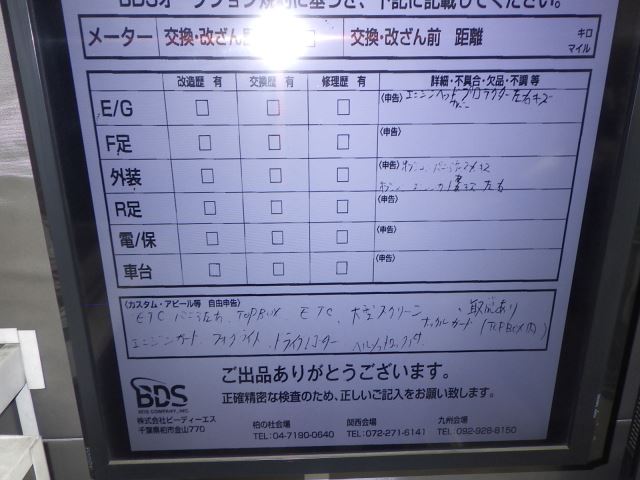 BDSオークション規約に基づき、下記に記載してください。
メーター 交換・改ざん 交換・改ざん前 距離 キロ マイル
改造歴 有 交換歴 有 修理歴 有 詳細・不具合・欠品・不調 等
E/G □ □ □ (申告) エンジンヘッドプロテクター左右キズ
F足 □ □ □ (申告)
外装 □ □ □ (申告)
左右
R足 □ □ □ (申告)
電/保 □ □ □ (申告)
車台 □ □ □ (申告)
(カスタム・アピール等 自由申告)
ETC パニア左右、TOPBOX ETC、大型スクリーン、取説あり
エンジンガード、フォグライト、ドライブレコーダー ナックルガード (TOPBOX内)
ご出品ありがとうございます。
正確精密な検査のため、正しいご記入をお願い致します。
BDS
BDS COMPANY, INC.
株式会社ビーディーエス
千葉県柏市金山770
柏の杜会場
TEL:04-7190-0640
関西会場
TEL:072-271-6141
九州会場
TEL:092-928-8150